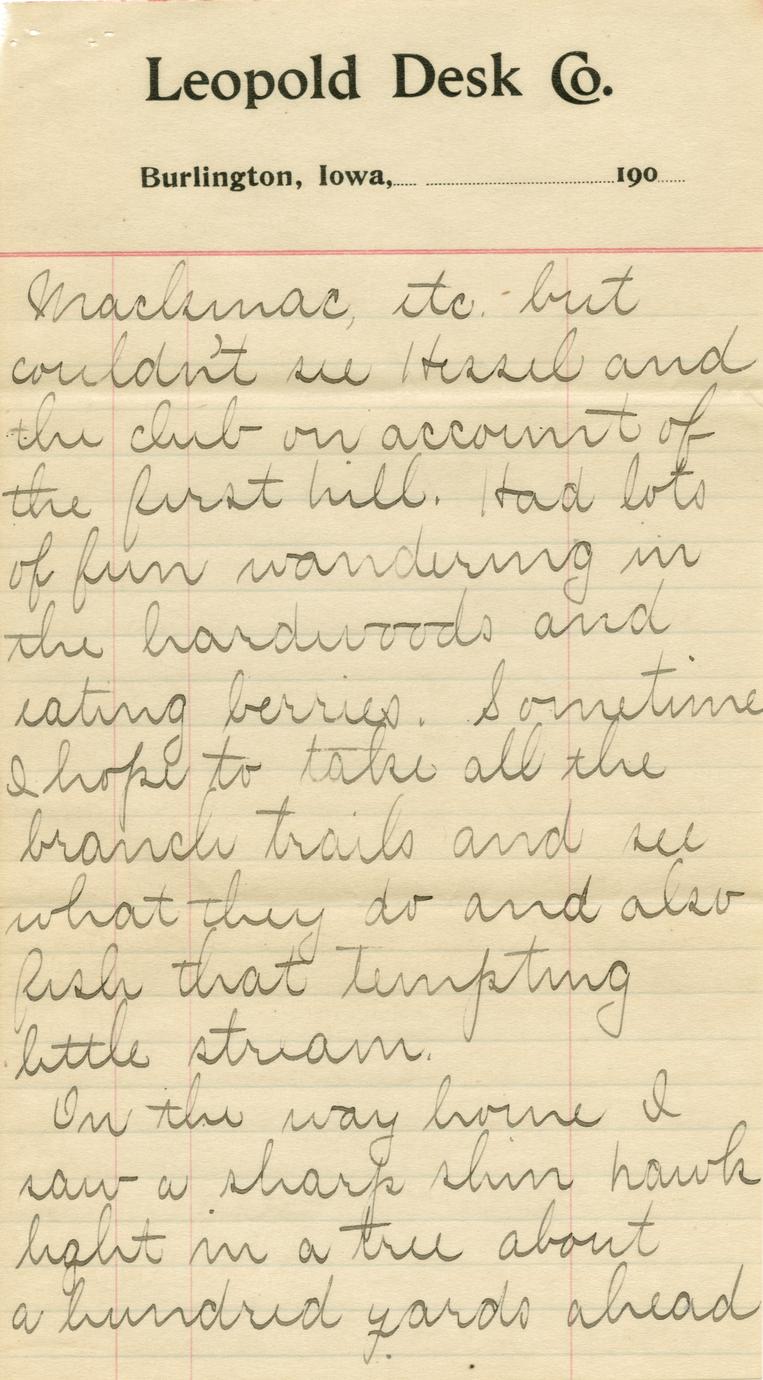 Leopold Desk Co.
Burlington, Iowa, 190
Mackinac, etc. but
couldn't see Hessel and
the club on account of
the first hill. Had lots
of fun wandering in
the hardwoods and
eating berries. Sometime
I hope to take all the
branch trails and see
what they do and also
fish that tempting
little stream.
On the way home I
saw a sharp shin hawk
light in a tree about
a hundred yards ahead